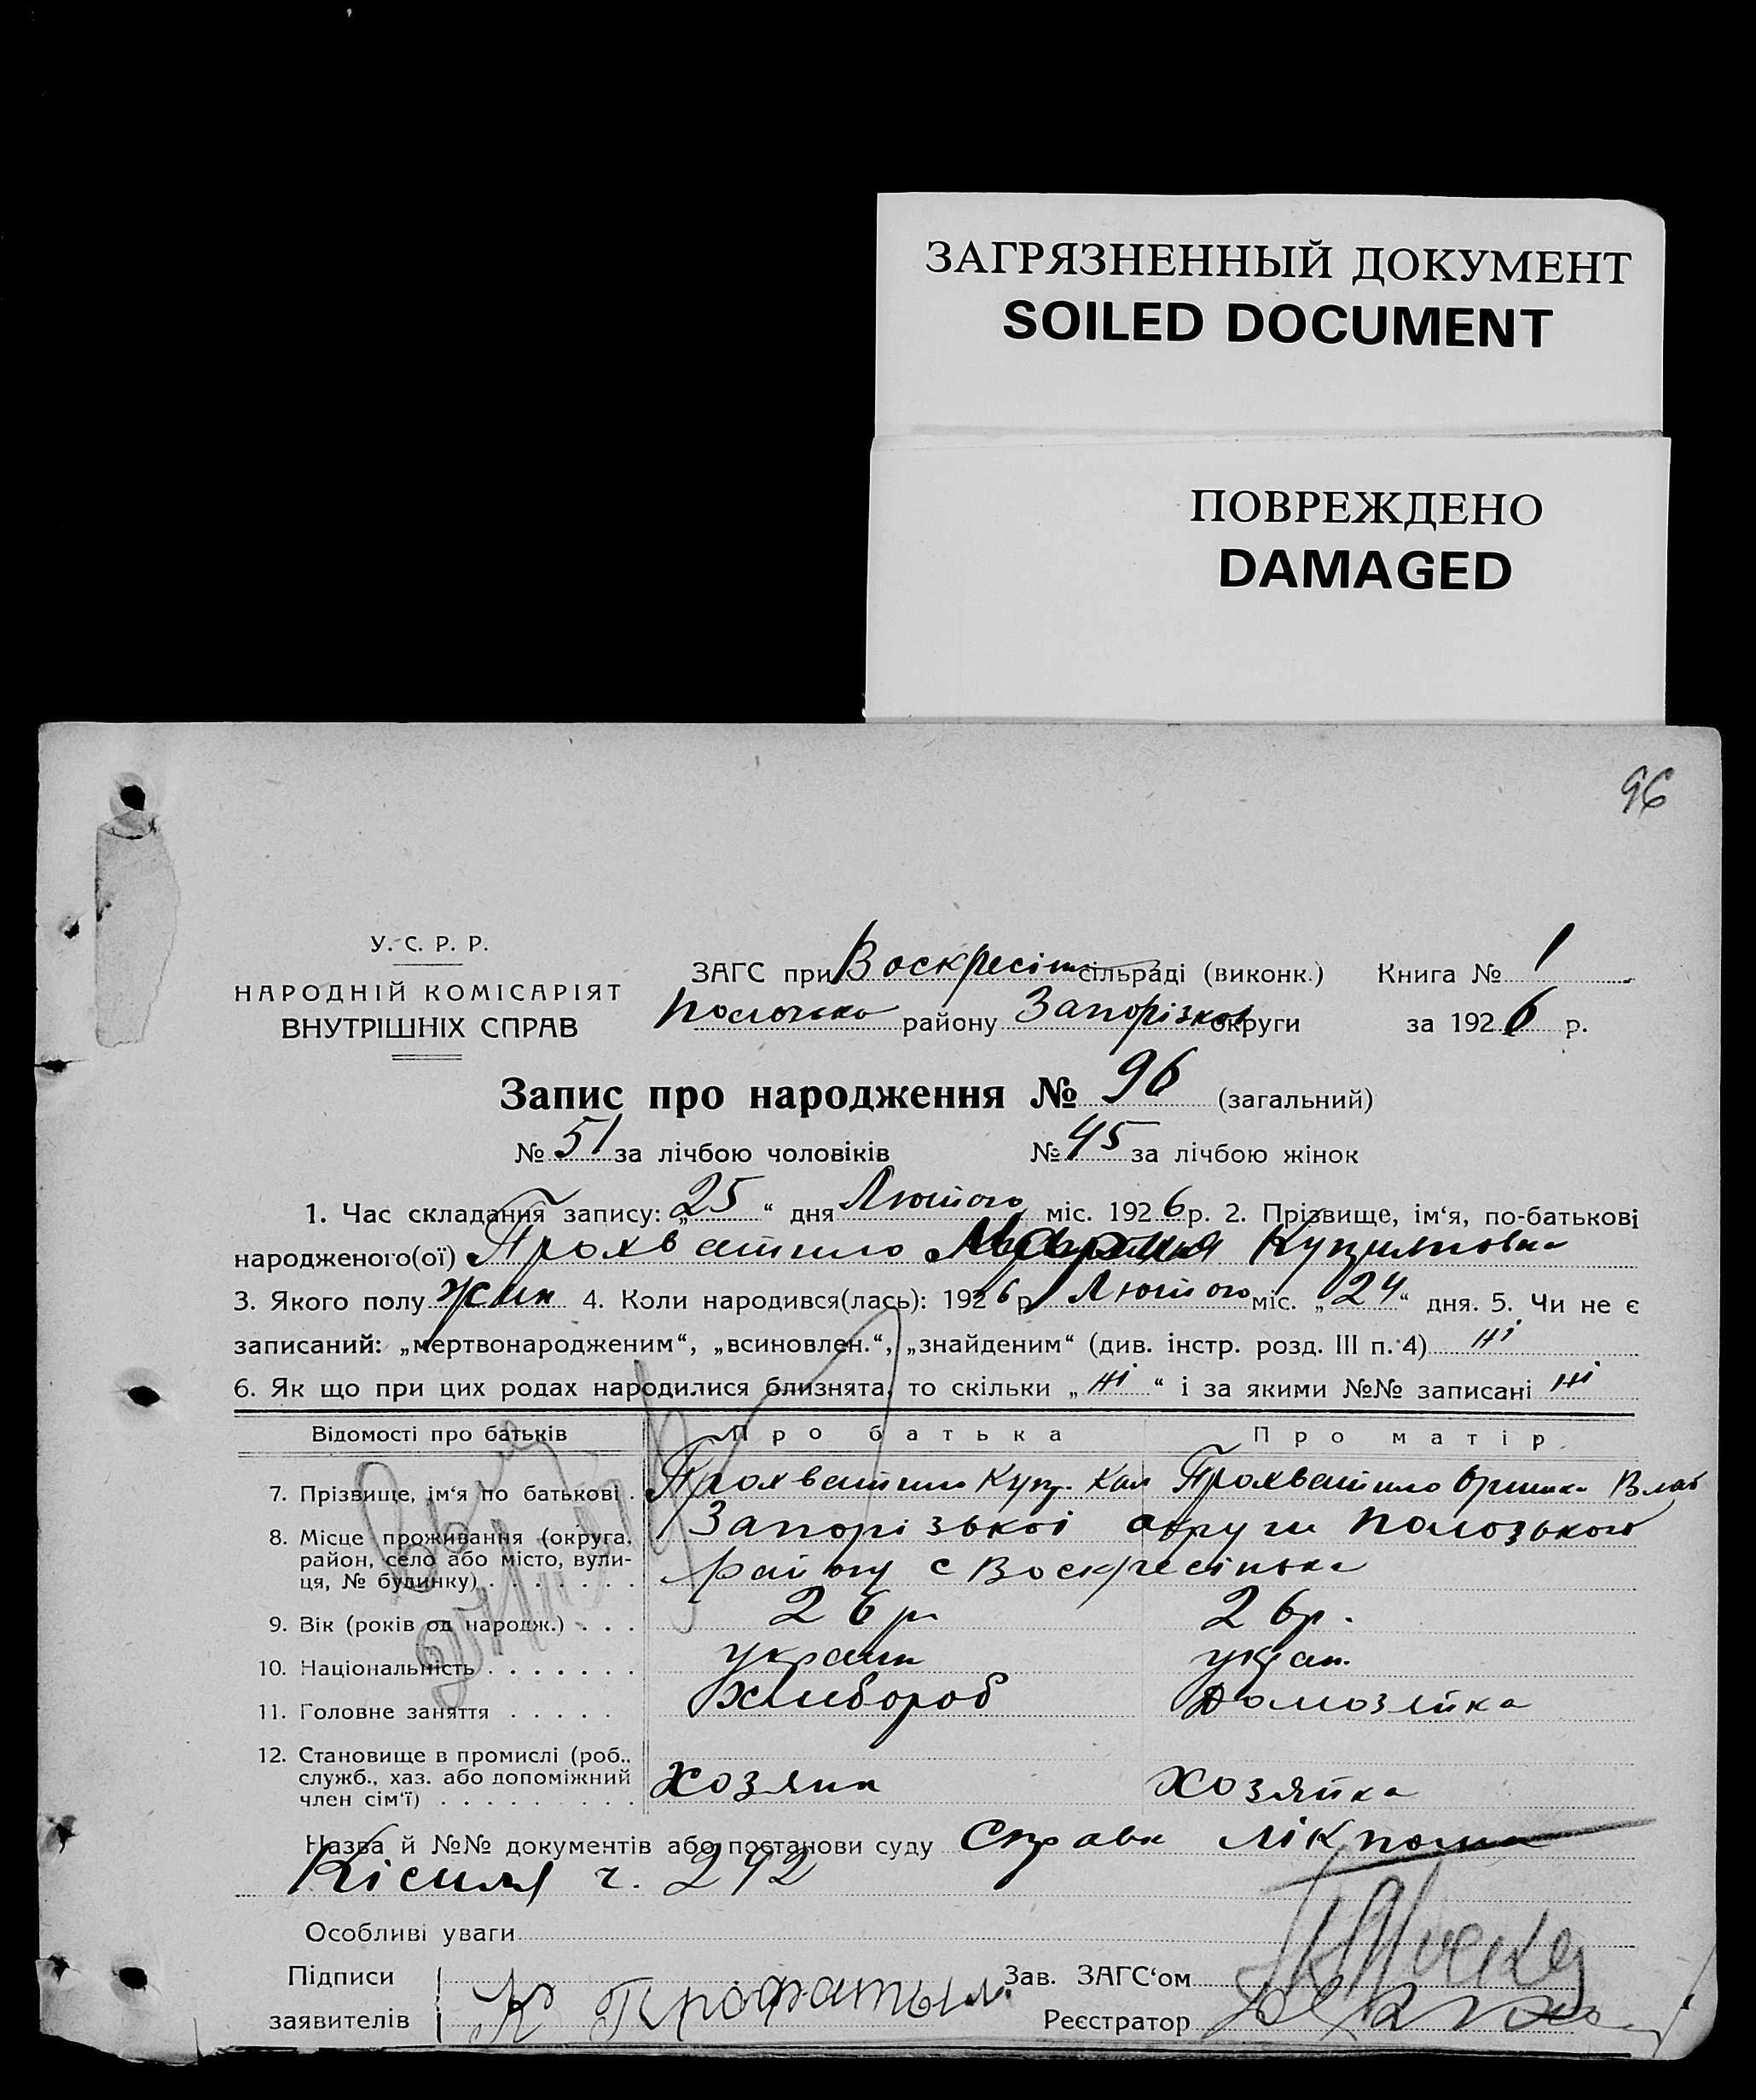 ЗАГРЯЗНЕННЫЙ ДОКУМЕНТ
SOILED DOCUMENT
ПОВРЕЖДЕНО
DAMAGED
96
У. С. Р. Р.
НАРОДНІЙ КОМІСАРІЯТ
ВНУТРІШНІХ СПРАВ
ЗАГС при Воскресін сільраді (виконк.) Книга № 1
району Запорізької округи за 1926 р.
Запис про народження № 96 (загальний)
№ 51 за лічбою чоловіків № 45 за лічбою жінок
1. Час складання запису: „25“ дня Лютого міс. 1926 р. 2. Прізвище, ім‘я, по-батькові
народженого(ої) Прохватило
3. Якого полу жін 4. Коли народився(лась): 1926 р. Лютого міс. „24“ дня. 5. Чи не є
записаний: „мертвонародженим“, „всиновлен.“, „знайденим“ (див. інстр. розд. III п. 4) ні
6. Як що при цих родах народилися близнята, то скільки „ні“ і за якими №№ записані ні
Відомості про батьків Про батька Про матір
7. Прізвище, ім‘я по батькові . Прохватило Купр. Кал Прохватило Оришка Влас
8. Місце проживання (округа, Запорізької округи Полозького
район, село або місто, вули- району с Воскресінка
ця, № будинку) . . . . . . .
9. Вік (років од народж.) . . . 26 р 26 р.
10. Національність . . . . . . . украін укран.
11. Головне заняття . . . . . Хлибороб Домозяйка
12. Становище в промислі (роб.,
служб., хаз. або допоміжний Хозяин Хозяйка
член сім‘ї) . . . . . . . . .
Назва й №№ документів або постанови суду Справка лікпома
Кісиля ч. 292
Особливі уваги
Підписи Зав. ЗАГС‘ом
заявителів К Профатыл. Реєстратор